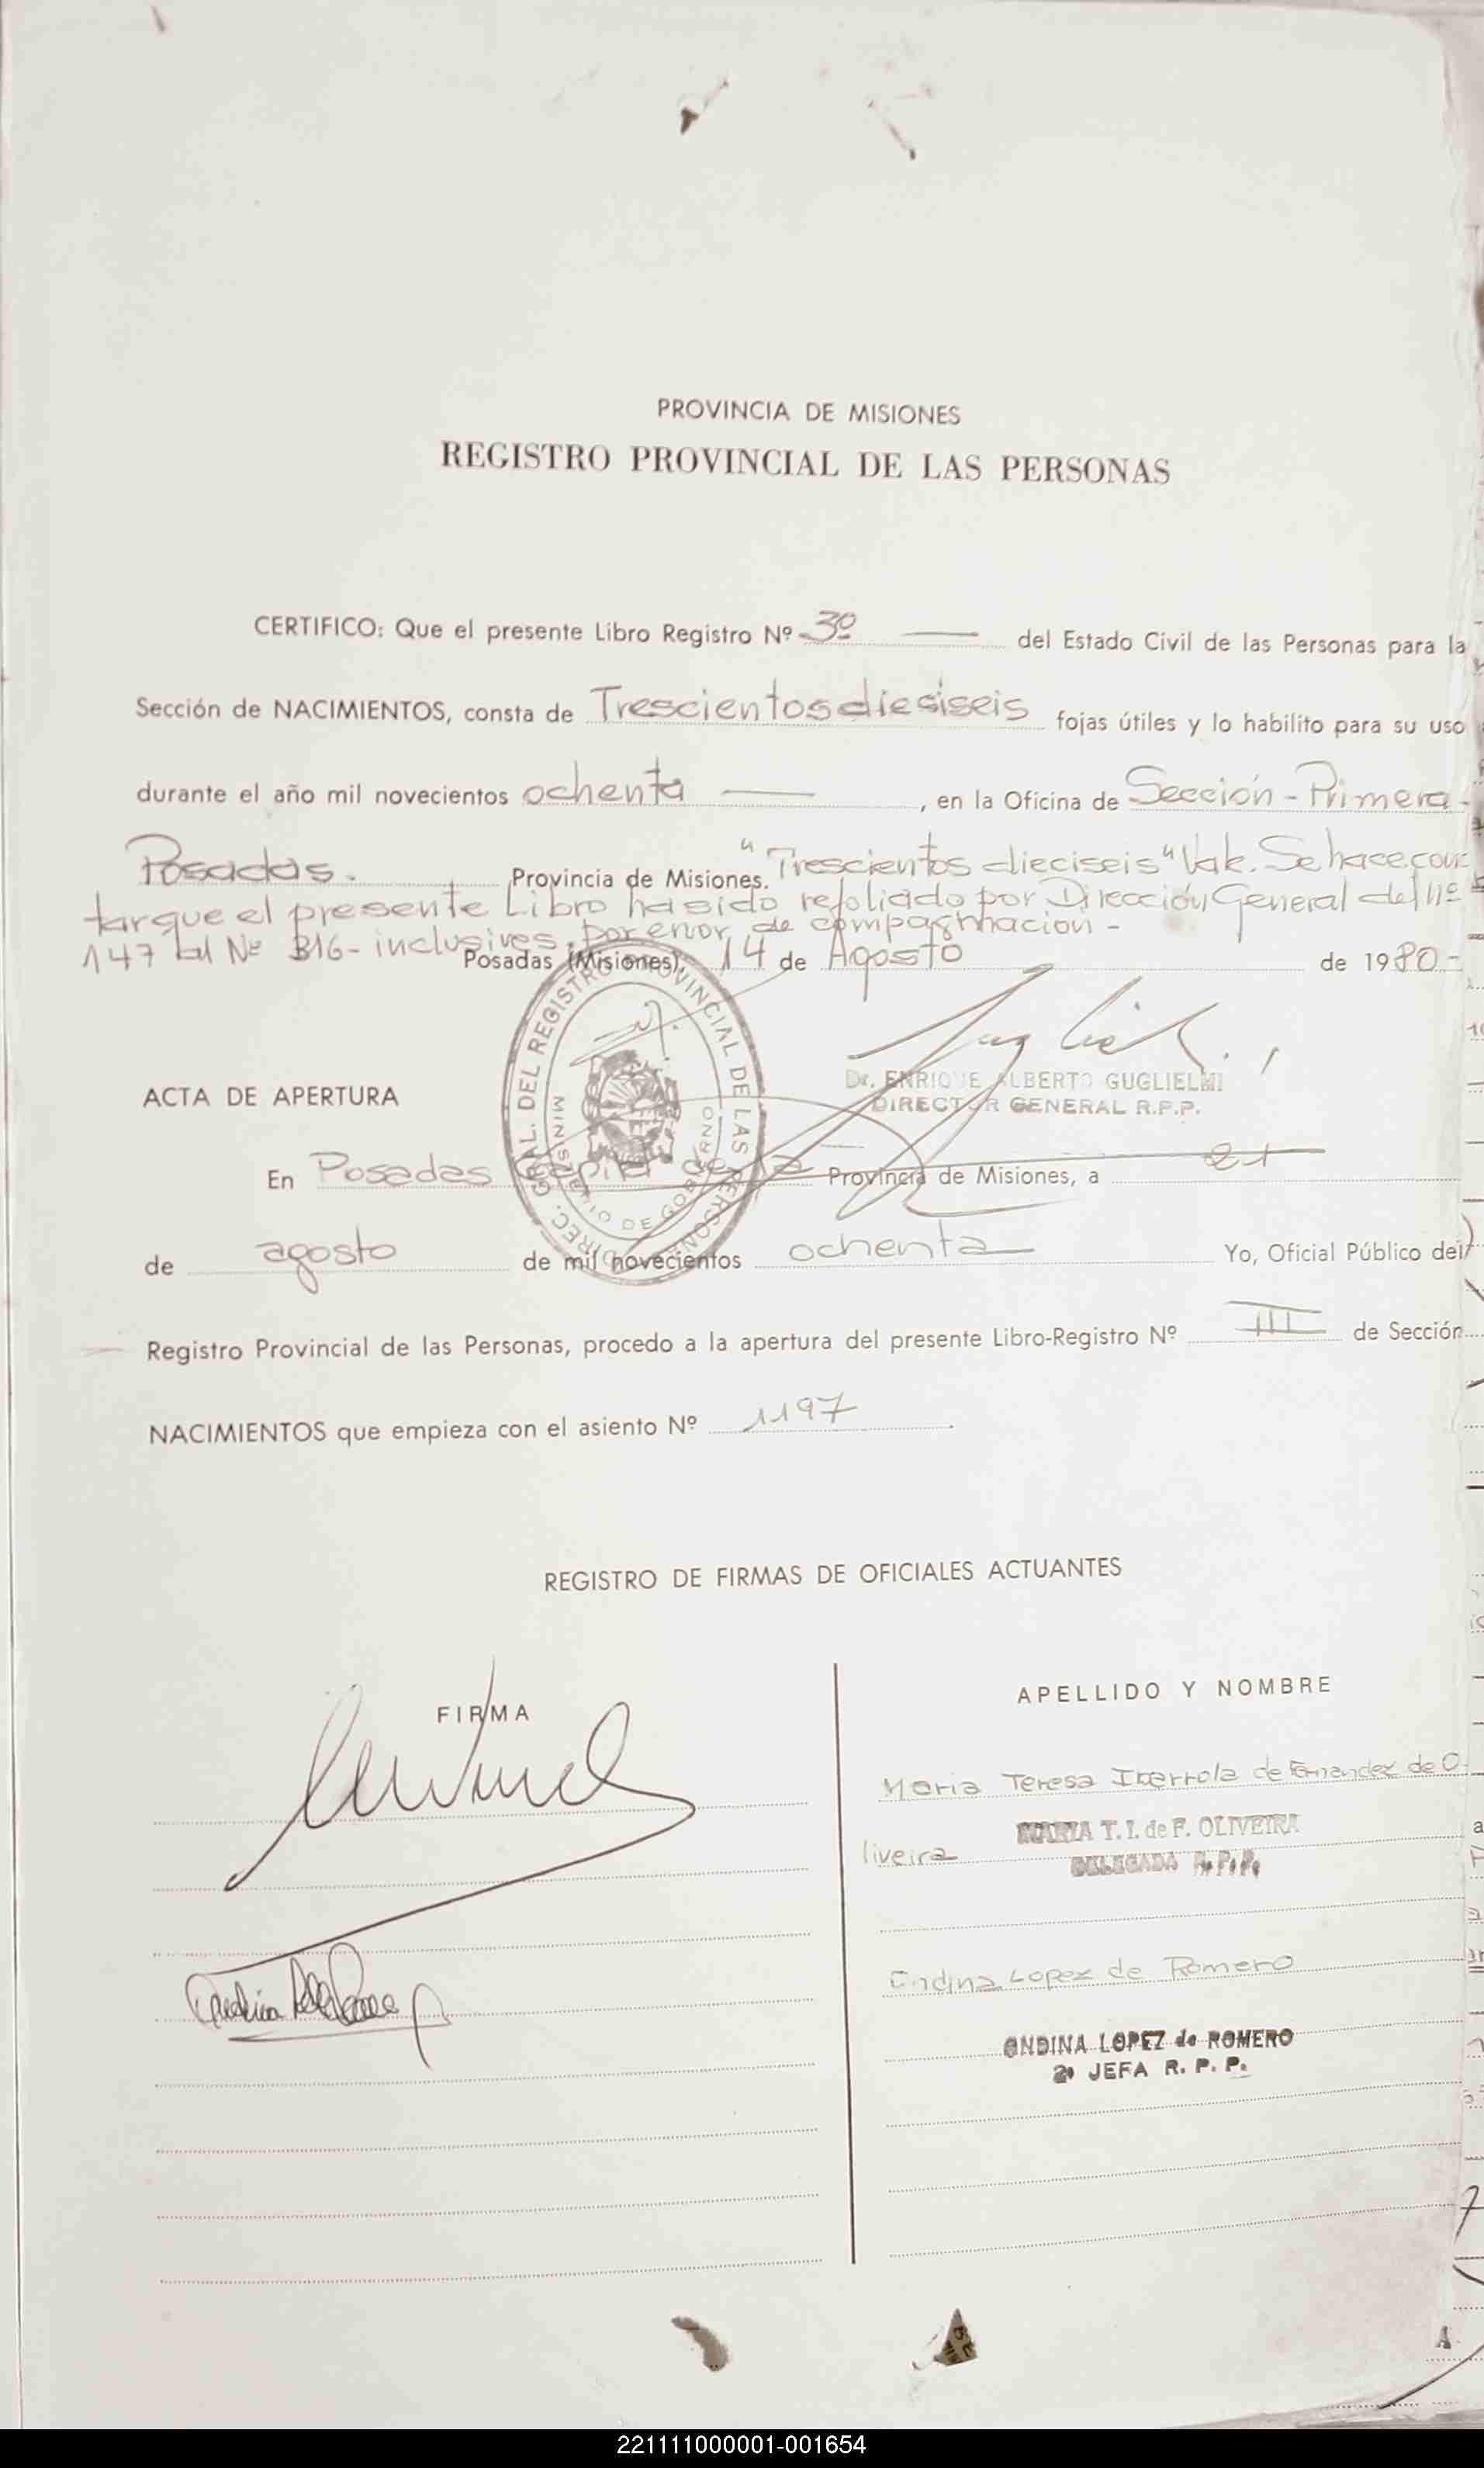 PROVINCIA DE MISIONES
REGISTRO PROVINCIAL DE LAS PERSONAS
CERTIFICO: Que el presente Libro Registro Nº 3º — del Estado Civil de las Personas para la
Sección de NACIMIENTOS, consta de Trescientos diesiseis fojas útiles y lo habilito para su uso
durante el año mil novecientos ochenta —, en la Oficina de Sección - Primera -
Posadas. Provincia de Misiones. "Trescientos dieciseis" Vale. Se hace cons
tar que el presente Libro ha sido refoliado por Dirección General del Nº
147 al Nº 316 - inclusives, por error de compaginacion -
Posadas (Misiones), 14 de Agosto de 1980 -
DIREC. GRAL. DEL REGISTRO PROVINCIAL DE LAS PERSONAS
MINISTERIO DE GOBIERNO
Dr. ENRIQUE ALBERTO GUGLIELMI
DIRECTOR GENERAL R.P.P.
ACTA DE APERTURA
En Posadas Capital de la Provincia de Misiones, a 21
de agosto de mil novecientos ochenta Yo, Oficial Público del
Registro Provincial de las Personas, procedo a la apertura del presente Libro-Registro Nº III de Sección
NACIMIENTOS que empieza con el asiento Nº 1197
REGISTRO DE FIRMAS DE OFICIALES ACTUANTES
FIRMA
APELLIDO Y NOMBRE
Maria Teresa Ibarrola de Fernandez de O-
liveira
MARIA T. I. de F. OLIVEIRA
DELEGADA R. P. P.
Ondina Lopez de Romero
ONDINA LOPEZ de ROMERO
2º JEFA R. P. P.
221111000001-001654